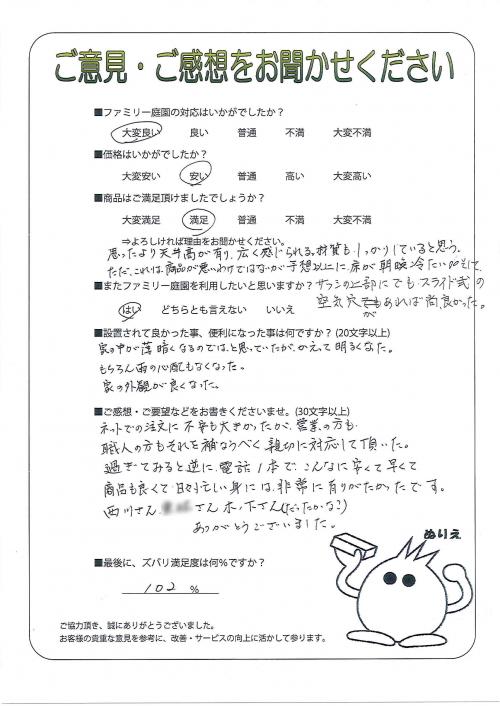 ご意見・ご感想をお聞かせください
■ファミリー庭園の対応はいかがでしたか？
大変良い 良い 普通 不満 大変不満
■価格はいかがでしたか？
大変安い 安い 普通 高い 大変高い
■商品はご満足頂けましたでしょうか？
大変満足 満足 普通 不満 大変不満
⇒よろしければ理由をお聞かせください。
思ったより天井高が有り、広く感じられる。材質もしっかりしていると思う。
ただ、これは、商品が悪いわけではないが予想以上に、床が朝晩冷たい
サッシの上部にでもスライド式の
空気穴があれば尚良かった。
■またファミリー庭園を利用したいと思いますか？
はい どちらとも言えない いいえ
■設置されて良かった事、便利になった事は何ですか？(20文字以上)
家の中が薄暗くなるのでは、と思っていたが、かえって明るくなった。
もちろん雨の心配もなくなった。
家の外観が良くなった。
■ご感想・ご要望などをお書きくださいませ。(30文字以上)
ネットでの注文に不安も大きかったが、営業の方も
職人の方もそれを補なうべく親切に対応して頂いた。
過ぎてみると逆に、電話1本で、こんなに安くて早くて
商品も良くて、日々忙しい身には、非常に有りがたかったです。
西川さん さん 木ノ下さん(だったかな？)
ありがとうございました。
ぬりえ
■最後に、ズバリ満足度は何%ですか？
102 %
ご協力頂き、誠にありがとうございました。
お客様の貴重な意見を参考に、改善・サービスの向上に活かして参ります。